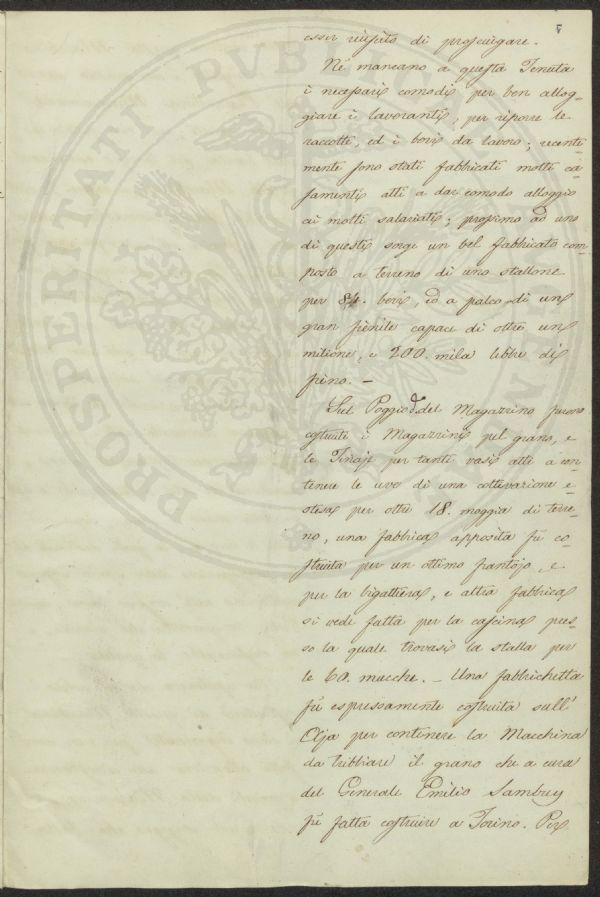 5
esser riuscito di prosciugare.
Né mancano a questa Tenuta
i necessarj comodi per ben allog=
giare i lavoranti, per riporre le
raccolte, ed i bovi da lavoro; recenti=
mente sono stati fabbricati molti ca=
samenti atti a dar comodo alloggio
ai molti salariati; prossimo ad uno
di questi sorge un bel fabbricato com=
posto a terreno di uno stallone
per 84. bovi, ed a palco di un
gran fienile capace di oltre un
milione, e 200. mila libbre di
fieno. —
Sul Poggio d.º del Magazzino furono
costruiti i Magazzini pel grano, e
le Tinaje per tanti vasi atti a con
tenere le uve di una coltivazione e=
stesa per oltre 18. moggia di terre=
no, una fabbrica apposita fu co=
struita per un ottimo frantojo, e
per la bigattiera, e altra fabbrica
si vede fatta per la cascina pres=
so la quale trovasi la stalla per
le 60. mucche. — Una fabbrichetta
fù espressamente costruita sull'
Aja per contenere la Macchina
da tribbiare il grano che a cura
del Generale Emilio Sambuy
fù fatta costruire a Torino. Per
PROSPERITATI PVBLICAE